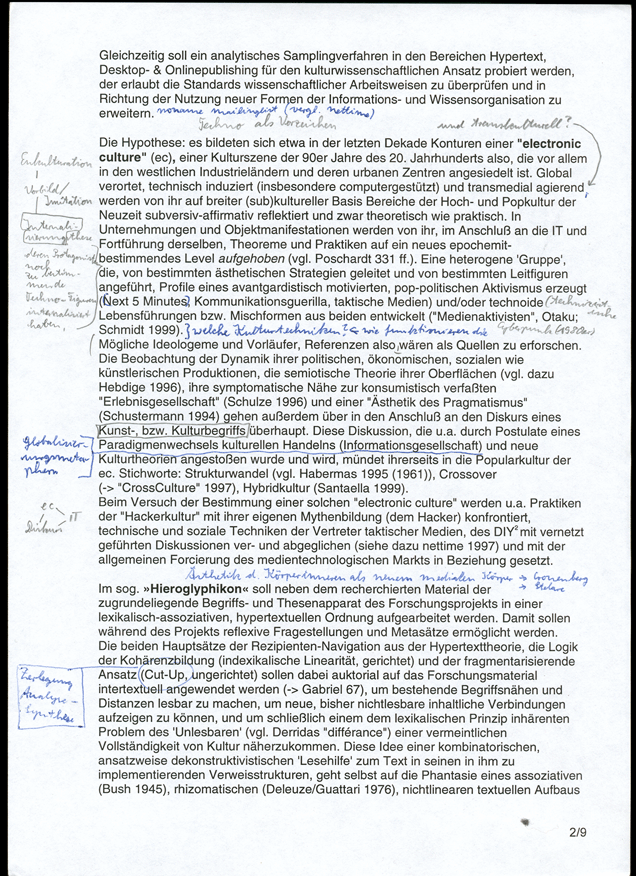 Gleichzeitig soll ein analytisches Samplingverfahren in den Bereichen Hypertext,
Desktop- & Onlinepublishing für den kulturwissenschaftlichen Ansatz probiert werden,
der erlaubt die Standards wissenschaftlicher Arbeitsweisen zu überprüfen und in
Richtung der Nutzung neuer Formen der Informations- und Wissensorganisation zu
erweitern. noname mailinglist (vergl. nettime)
Techno als Vorzeichen
und transkulturell?
Die Hypothese: es bildeten sich etwa in der letzten Dekade Konturen einer "electronic
culture" (ec), einer Kulturszene der 90er Jahre des 20. Jahrhunderts also, die vor allem
in den westlichen Industrieländern und deren urbanen Zentren angesiedelt ist. Global
verortet, technisch induziert (insbesondere computergestützt) und transmedial agierend
werden von ihr auf breiter (sub)kultureller Basis Bereiche der Hoch- und Popkultur der
Neuzeit subversiv-affirmativ reflektiert und zwar theoretisch wie praktisch. In
Unternehmungen und Objektmanifestationen werden von ihr, im Anschluß an die IT und
Fortführung derselben, Theoreme und Praktiken auf ein neues epochemit-
bestimmendes Level aufgehoben (vgl. Poschardt 331 ff.). Eine heterogene 'Gruppe',
die, von bestimmten ästhetischen Strategien geleitet und von bestimmten Leitfiguren
angeführt, Profile eines avantgardistisch motivierten, pop-politischen Aktivismus erzeugt
(Next 5 Minutes, Kommunikationsguerilla, taktische Medien) und/oder technoide
Lebensführungen bzw. Mischformen aus beiden entwickelt ("Medienaktivisten", Otaku;
Schmidt 1999). } welche Kulturtechniken? & wie funktionieren die
Cyberpunk (1980er)
Enkulturation
Vorbild/
Imitation
Internali-
sierungsthese
deren Protagonisten
noch
zu bestim-
mende
Techno-Figuren
internalisiert
haben.
Mögliche Ideologeme und Vorläufer, Referenzen also wären als Quellen zu erforschen.
Die Beobachtung der Dynamik ihrer politischen, ökonomischen, sozialen wie
künstlerischen Produktionen, die semiotische Theorie ihrer Oberflächen (vgl. dazu
Hebdige 1996), ihre symptomatische Nähe zur konsumistisch verfaßten
"Erlebnisgesellschaft" (Schulze 1996) und einer "Ästhetik des Pragmatismus"
(Schustermann 1994) gehen außerdem über in den Anschluß an den Diskurs eines
Kunst-, bzw. Kulturbegriffs überhaupt. Diese Diskussion, die u.a. durch Postulate eines
Paradigmenwechsels kulturellen Handelns (Informationsgesellschaft) und neue
Kulturtheorien angestoßen wurde und wird, mündet ihrerseits in die Popularkultur der
ec. Stichworte: Strukturwandel (vgl. Habermas 1995 (1961)), Crossover
(-> "CrossCulture" 1997), Hybridkultur (Santaella 1999).
Globalisier-
ungsmeta-
phern
Beim Versuch der Bestimmung einer solchen "electronic culture" werden u.a. Praktiken
der "Hackerkultur" mit ihrer eigenen Mythenbildung (dem Hacker) konfrontiert,
technische und soziale Techniken der Vertreter taktischer Medien, des DIY² mit vernetzt
geführten Diskussionen ver- und abgeglichen (siehe dazu nettime 1997) und mit der
allgemeinen Forcierung des medientechnologischen Markts in Beziehung gesetzt.
ec
IT
Diskurs
Ästhetik d. Körperinneren als neuem medialen Körper → Cronenberg
→ Stelarc
Im sog. »Hieroglyphikon« soll neben dem recherchierten Material der
zugrundeliegende Begriffs- und Thesenapparat des Forschungsprojekts in einer
lexikalisch-assoziativen, hypertextuellen Ordnung aufgearbeitet werden. Damit sollen
während des Projekts reflexive Fragestellungen und Metasätze ermöglicht werden.
Die beiden Hauptsätze der Rezipienten-Navigation aus der Hypertexttheorie, die Logik
der Kohärenzbildung (indexikalische Linearität, gerichtet) und der fragmentarisierende
Ansatz (Cut-Up, ungerichtet) sollen dabei auktorial auf das Forschungsmaterial
intertextuell angewendet werden (-> Gabriel 67), um bestehende Begriffsnähen und
Distanzen lesbar zu machen, um neue, bisher nichtlesbare inhaltliche Verbindungen
aufzeigen zu können, und um schließlich einem dem lexikalischen Prinzip inhärenten
Problem des 'Unlesbaren' (vgl. Derridas "différance") einer vermeintlichen
Vollständigkeit von Kultur näherzukommen. Diese Idee einer kombinatorischen,
ansatzweise dekonstruktivistischen 'Lesehilfe' zum Text in seinen in ihm zu
implementierenden Verweisstrukturen, geht selbst auf die Phantasie eines assoziativen
(Bush 1945), rhizomatischen (Deleuze/Guattari 1976), nichtlinearen textuellen Aufbaus
Zerlegung
Analyse -
Synthese
2/9